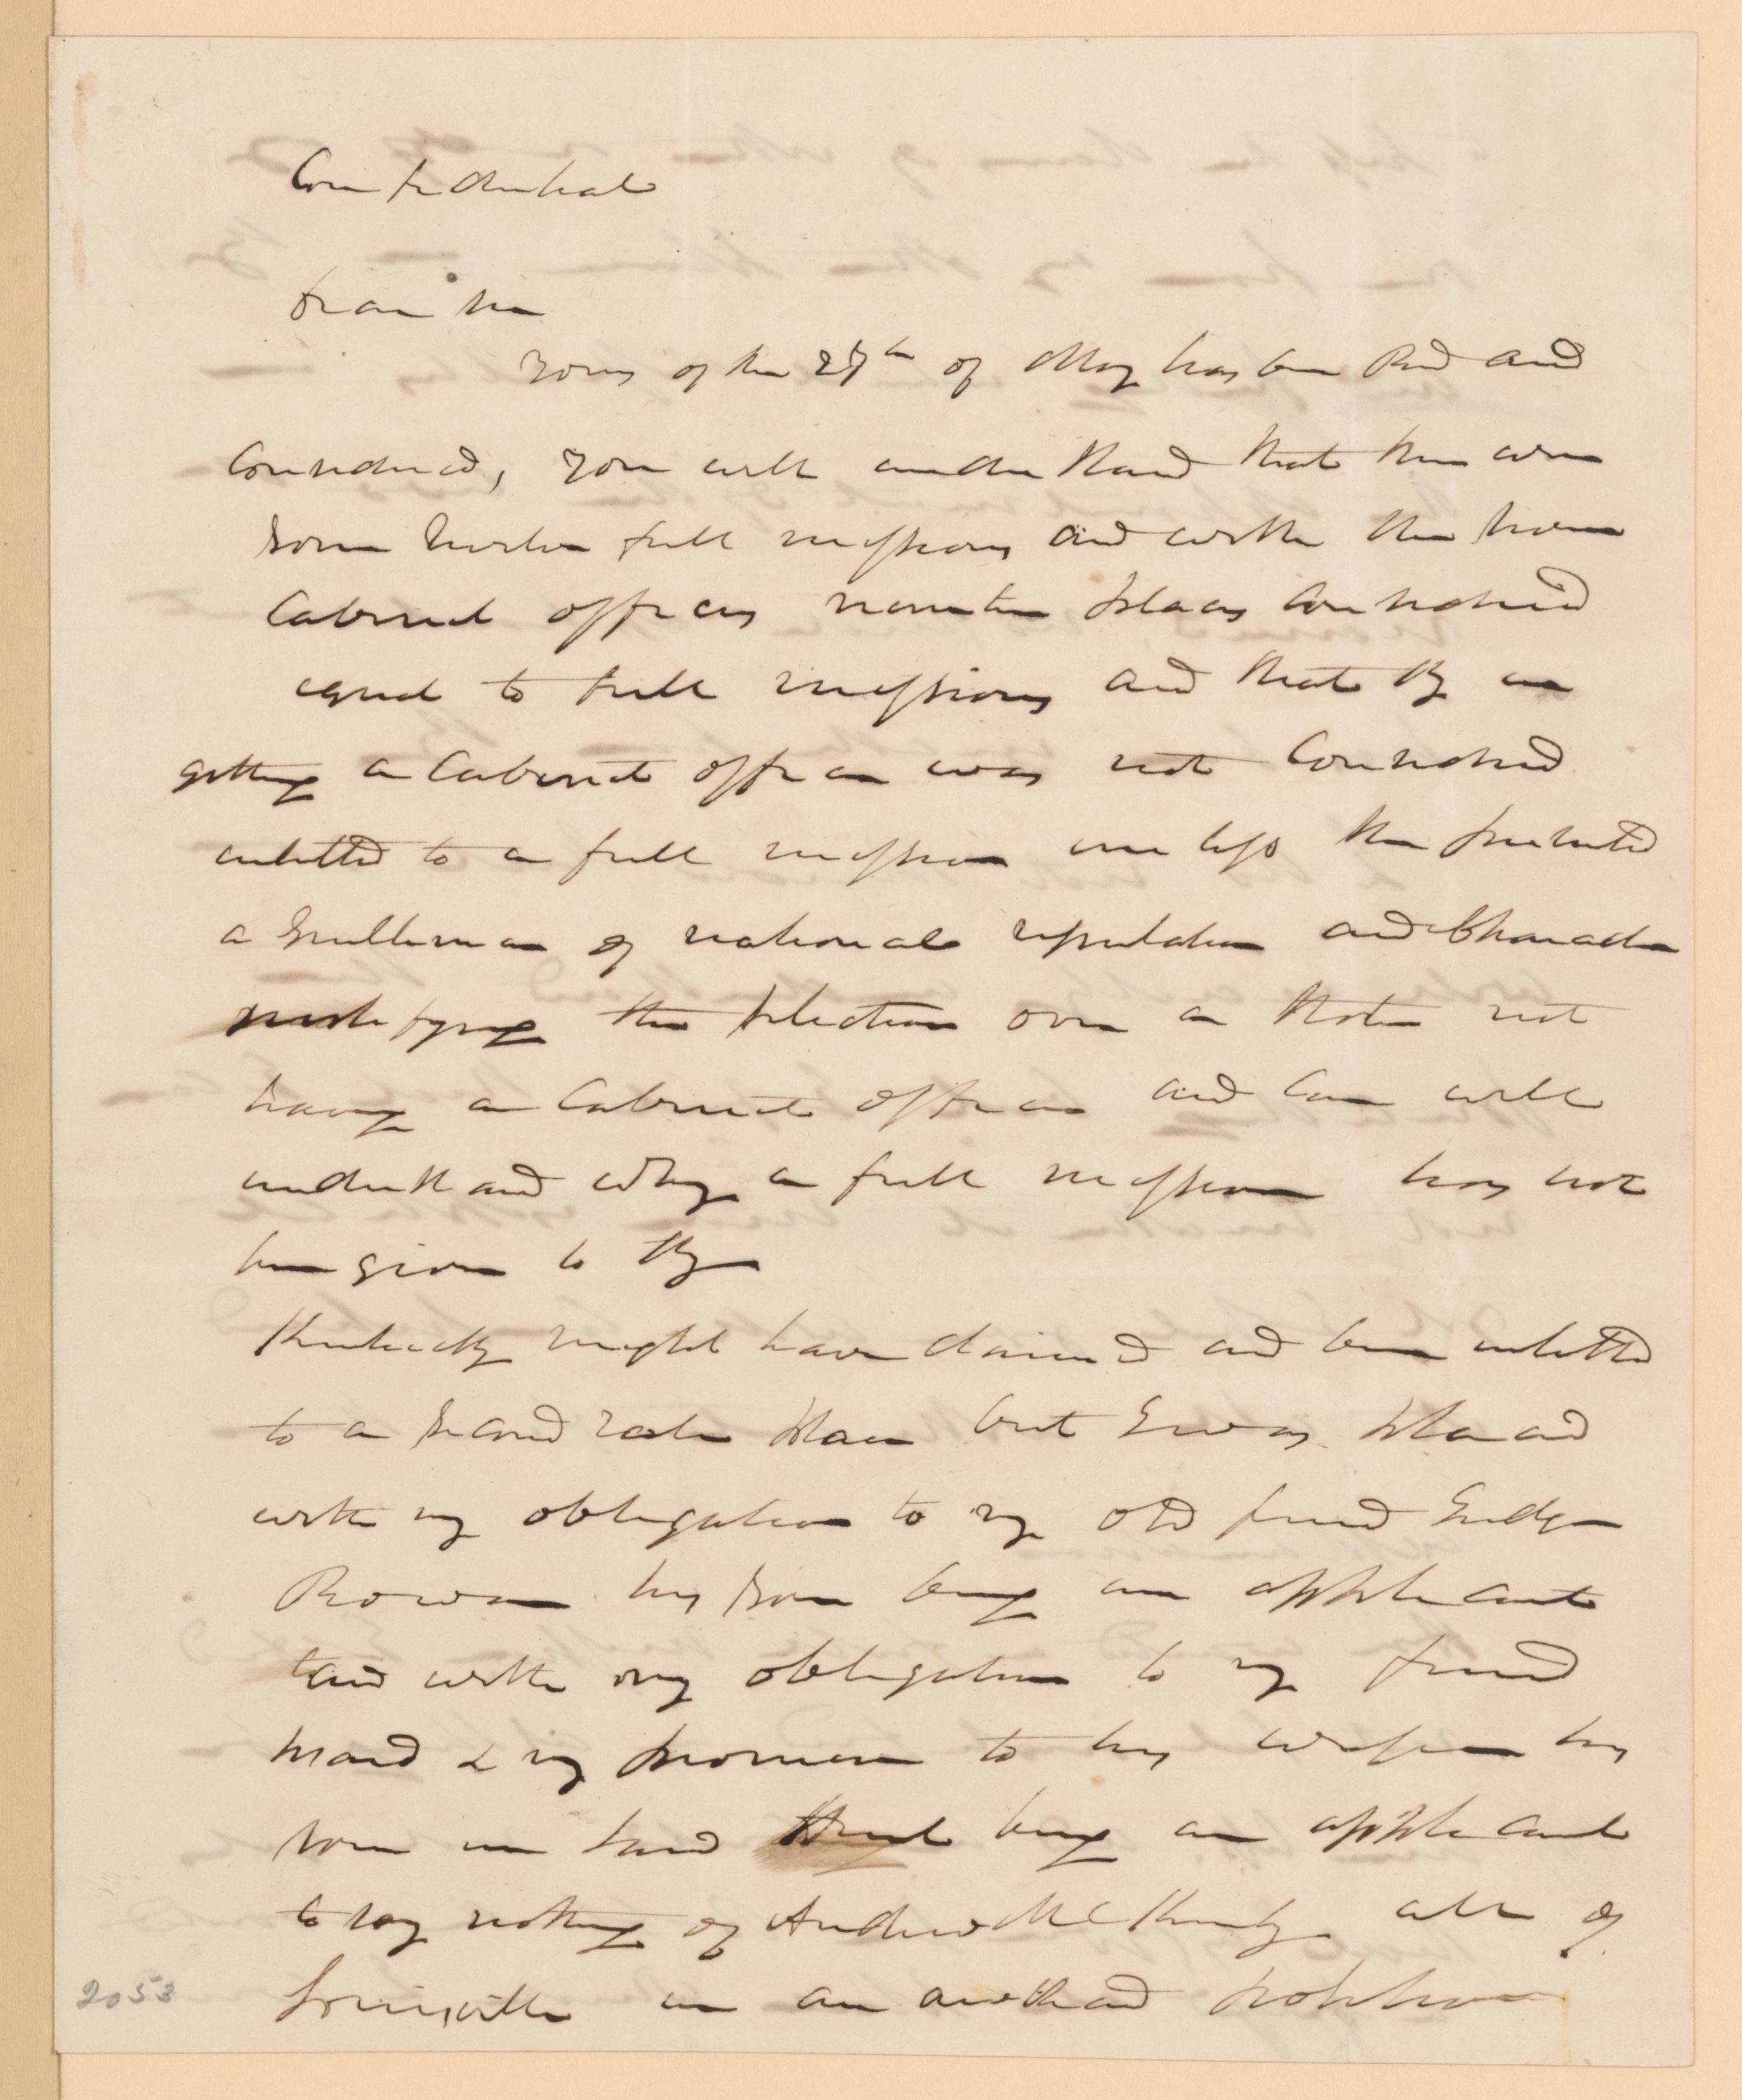 Confidential
Dear Sir
Yours of the 27th of May has been Recd and
Considered, You will understand that there were
some twelve full missions and with the seven
Cabinet offices nineteen places Considered
equal to full missions and that Ky in
getting a Cabinet office was not Considered
entitled to a full mission unless she presented
a Gentleman of national reputation and Character
justifying the selection over a State not
having a Cabinet office and can well
understand why a full mission has not
been given to Ky
Kentucky might have claimed and been entitled
to a second rate place but I was placed
with my obligation to my old friend Judge
Rowan his son being an applicant
and with my obligation to my friend
Ward & my promise to his wife his
son in law Hunt being an applicant
to say nothing of Andrew McKinly all of
Louisville in an awkward position
2053